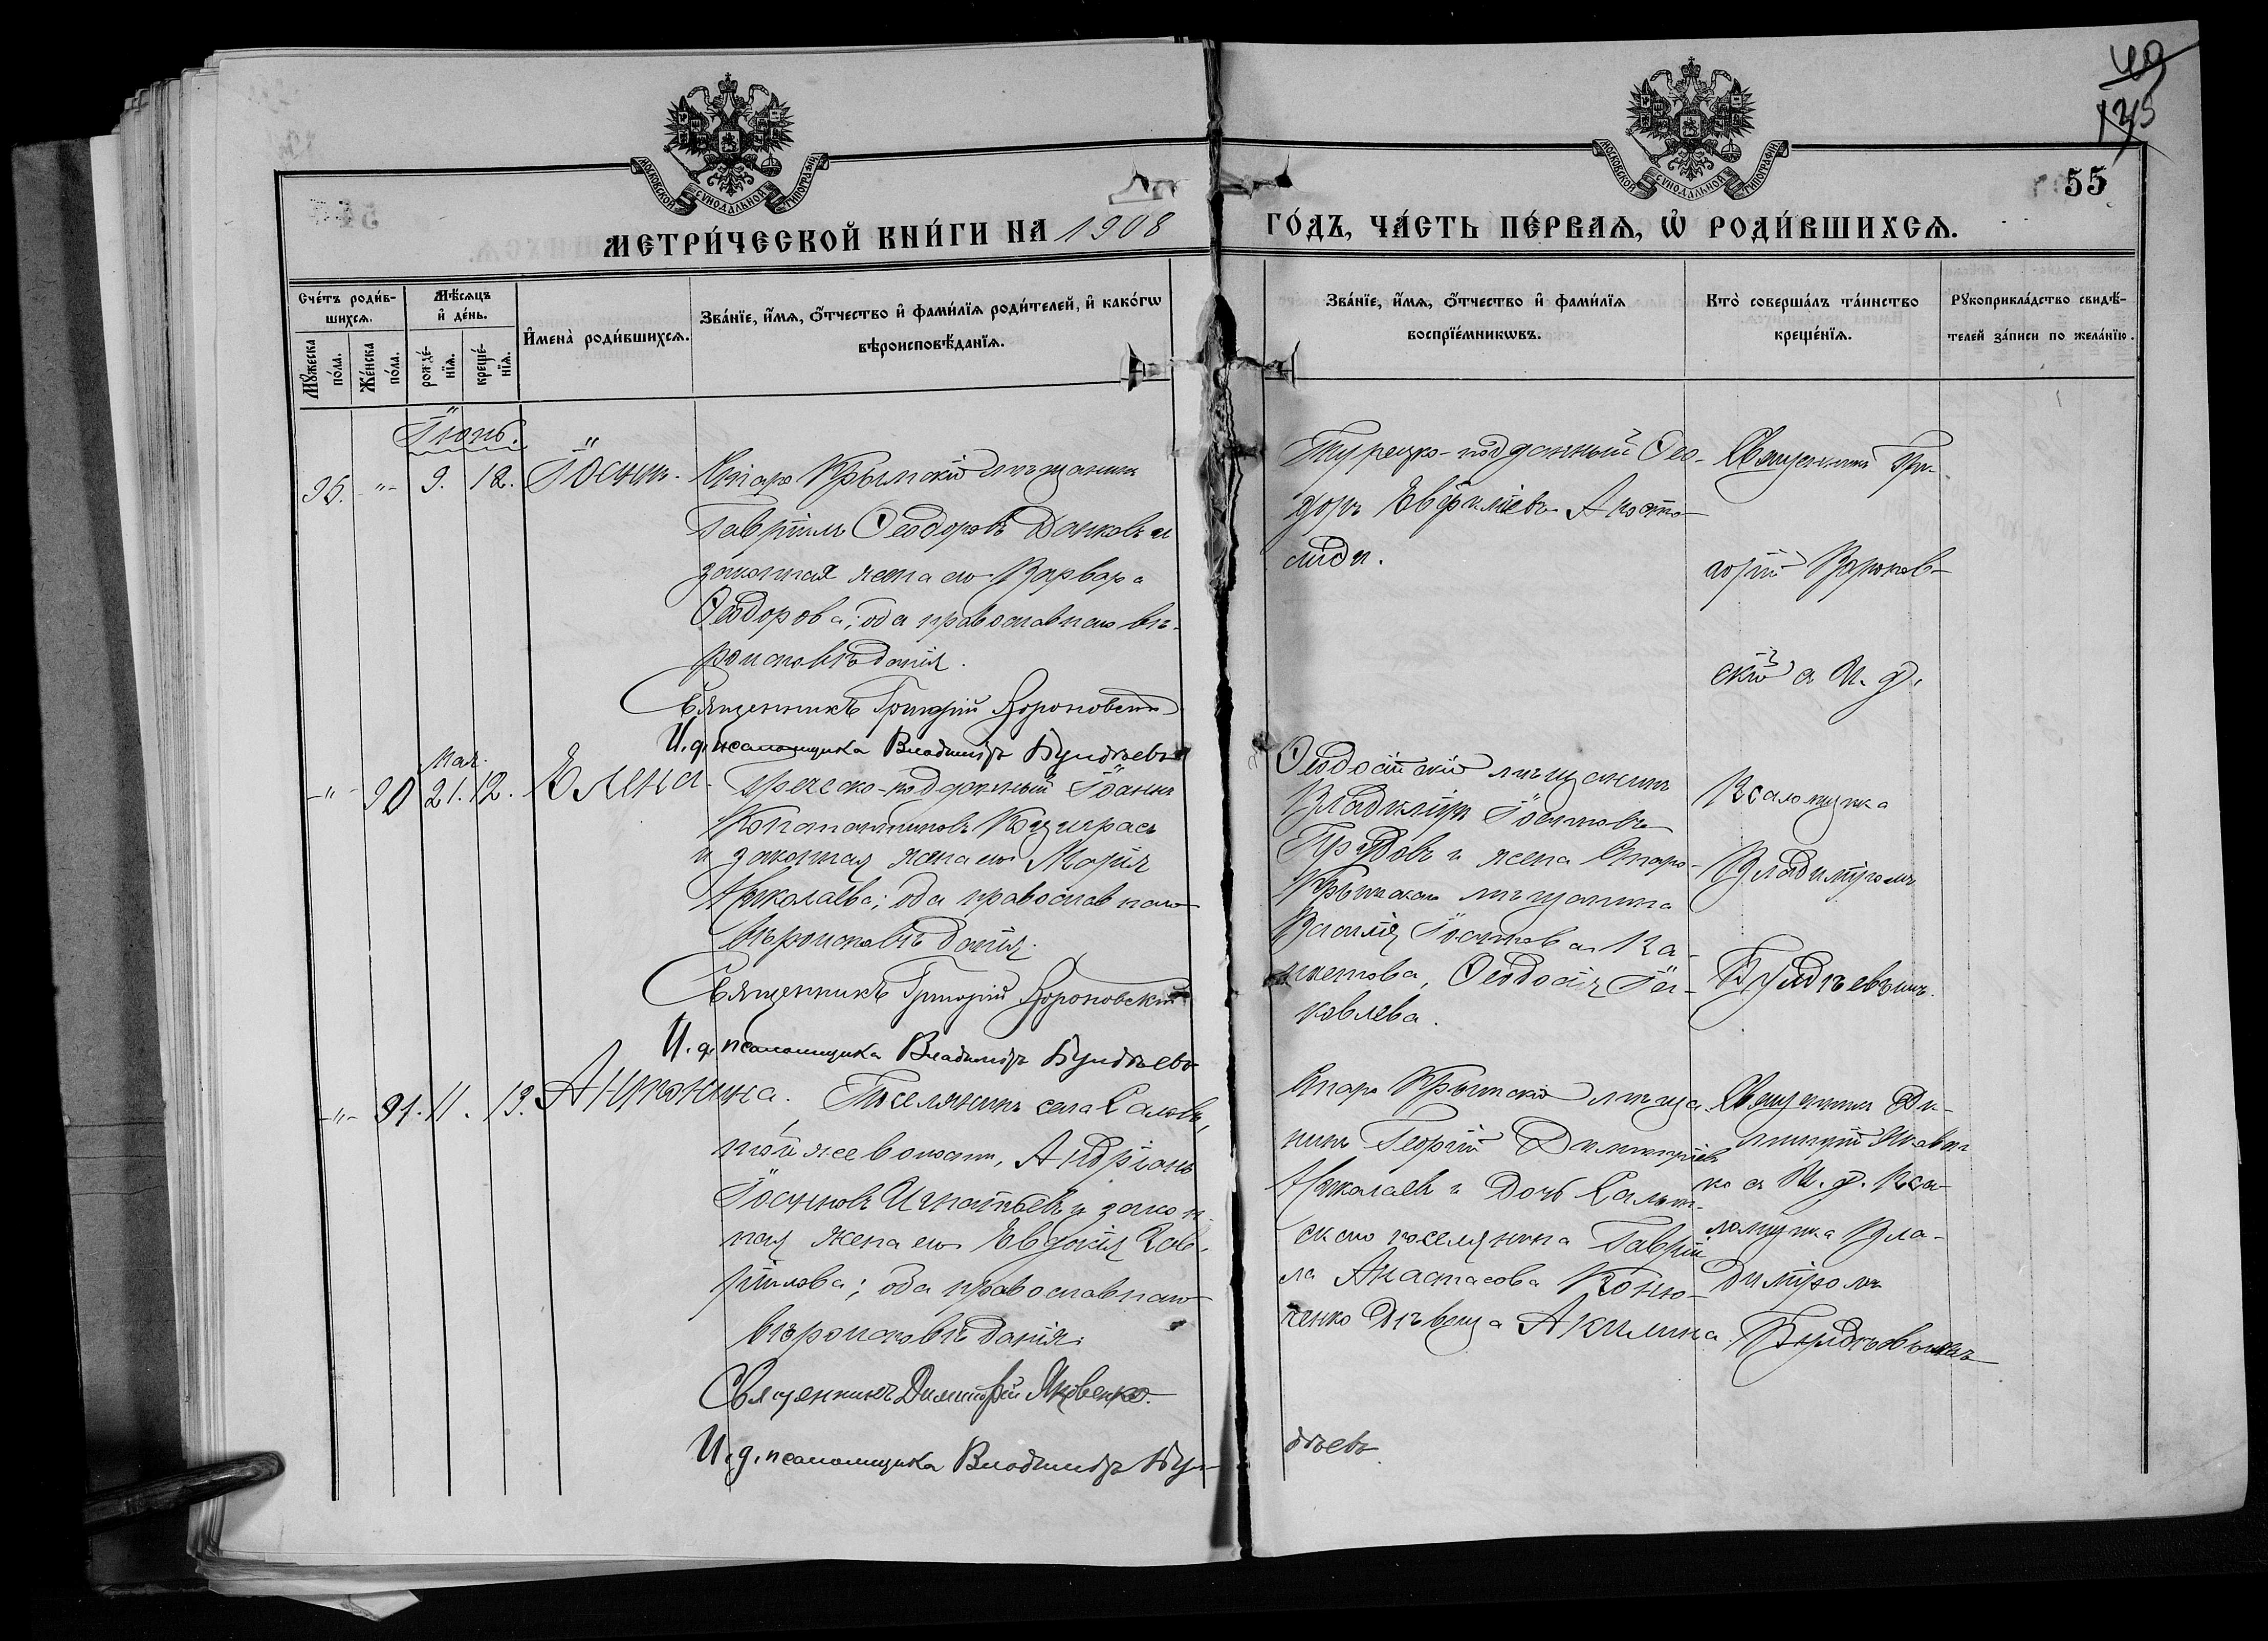 49
135
55
МОСКОВСКОЙ СѴНОДАЛЬНОЙ ТИПОГРАФІИ
МОСКОВСКОЙ СѴНОДАЛЬНОЙ ТИПОГРАФІИ
МЕТРИ́ЧЕСКОЙ КНИ́ГИ НА 1908 ГО́ДЪ, ЧА́СТЬ ПЕ́РВАѦ, Ѡ҆ РОДИ́ВШИХСѦ.
Сче́тъ роди́в-
шихсѧ.
Мꙋ́жеска по́ла.
Же́нска по́ла.
Мѣ́сѧцъ
и҆ де́нь.
рожде́нїѧ.
креще́нїѧ.
И҆мена̀ роди́вшихсѧ.
Зва́нїе, и҆́мѧ, ѻ҆́тчество и҆ фами́лїѧ роди́телей, и҆ како́гѡ
вѣроисповѣ́данїѧ.
Зва́нїе, и҆́мѧ, ѻ҆́тчество и҆ фами́лїѧ
воспрїе́мникѡвъ.
Кто̀ соверша́лъ та́инство
креще́нїѧ.
Рꙋкоприкла́дство свидѣ́-
телей за́писи по жела́нїю.
Іюнь.
95. -"- 9. 12. Іоаннъ.
Старо Крымскій мѣщанинъ
Гавріилъ Ѳеодоровъ Данковъ и
законная жена его Варвара
Ѳеодорова; оба православнаго вѣ-
роисповѣданія.
Священникъ Григорій Вороновскій
И. д. псаломщика Владиміръ Бундѣевъ
Турецко-подданный Ѳео-
доръ Евфиміевъ Апосто-
лиди.
Священникъ Гри-
горій Воронов-
скій съ И. д.
Мая.
-"- 90 21. 12. Елена.
Греческо-подданный Іоаннъ
Константиновъ
и законная жена его Марія
Николаева; оба православнаго
вѣроисповѣданія.
Священникъ Григорій Вороновскій
И. д. псаломщика Владиміръ Бундѣевъ
Ѳеодосійскій мѣщанинъ
Владиміръ Іоанновъ
и жена Старо-
Крымскаго мѣщанина
Василія Іоаннова Ка-
Ѳеодосія Іа-
ковлева.
Псаломщика
Владиміромъ
Бундѣевымъ.
-"- 91. 11. 13. Антонина.
Поселянинъ села Саловъ,
той же волости, Андріанъ
Іоанновъ Игнатьевъ и закон-
ная жена его Евдокія Гав-
ріилова; оба православнаго
вѣроисповѣданія.
Священникъ Димитрій Яковенко.
И. д. псаломщика Владиміръ Бун-
дѣевъ
Старо Крымскій мѣща-
нинъ Георгій Димитріевъ
Николаевъ и дочь
скаго поселянина Гаврі-
ла Анастасова Коню-
ченко дѣвица Акилина.
Священникъ Ди-
митрій Яковен-
ко съ И. д. пса-
ломщика Вла-
диміромъ
Бундѣевымъ